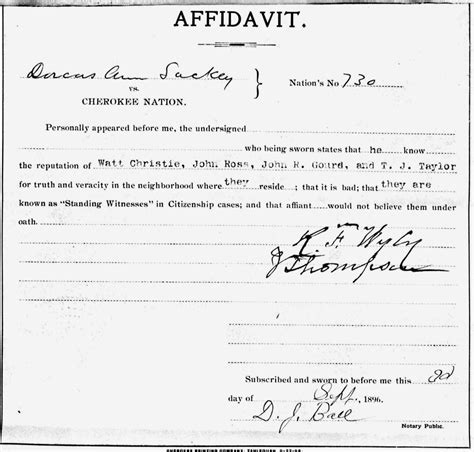 AFFIDAVIT.
Dorcas Ann Lackey } Nation's No 730
vs.
CHEROKEE NATION.
Personally appeared before me, the undersigned
who being sworn states that he know
the reputation of Watt Christie, John Ross, John R. Gourd, and T. J. Taylor
for truth and veracity in the neighborhood where they reside; that it is bad; that they are
known as "Standing Witnesses" in Citizenship cases; and that affiant would not believe them under
oath.
R. F. Wyly
J Thompson
Subscribed and sworn to before me this
day of Sept, 1896.
D. J. Ball
Notary Public.
CHEROKEE PRINTING COMPANY, TAHLEQUAH,